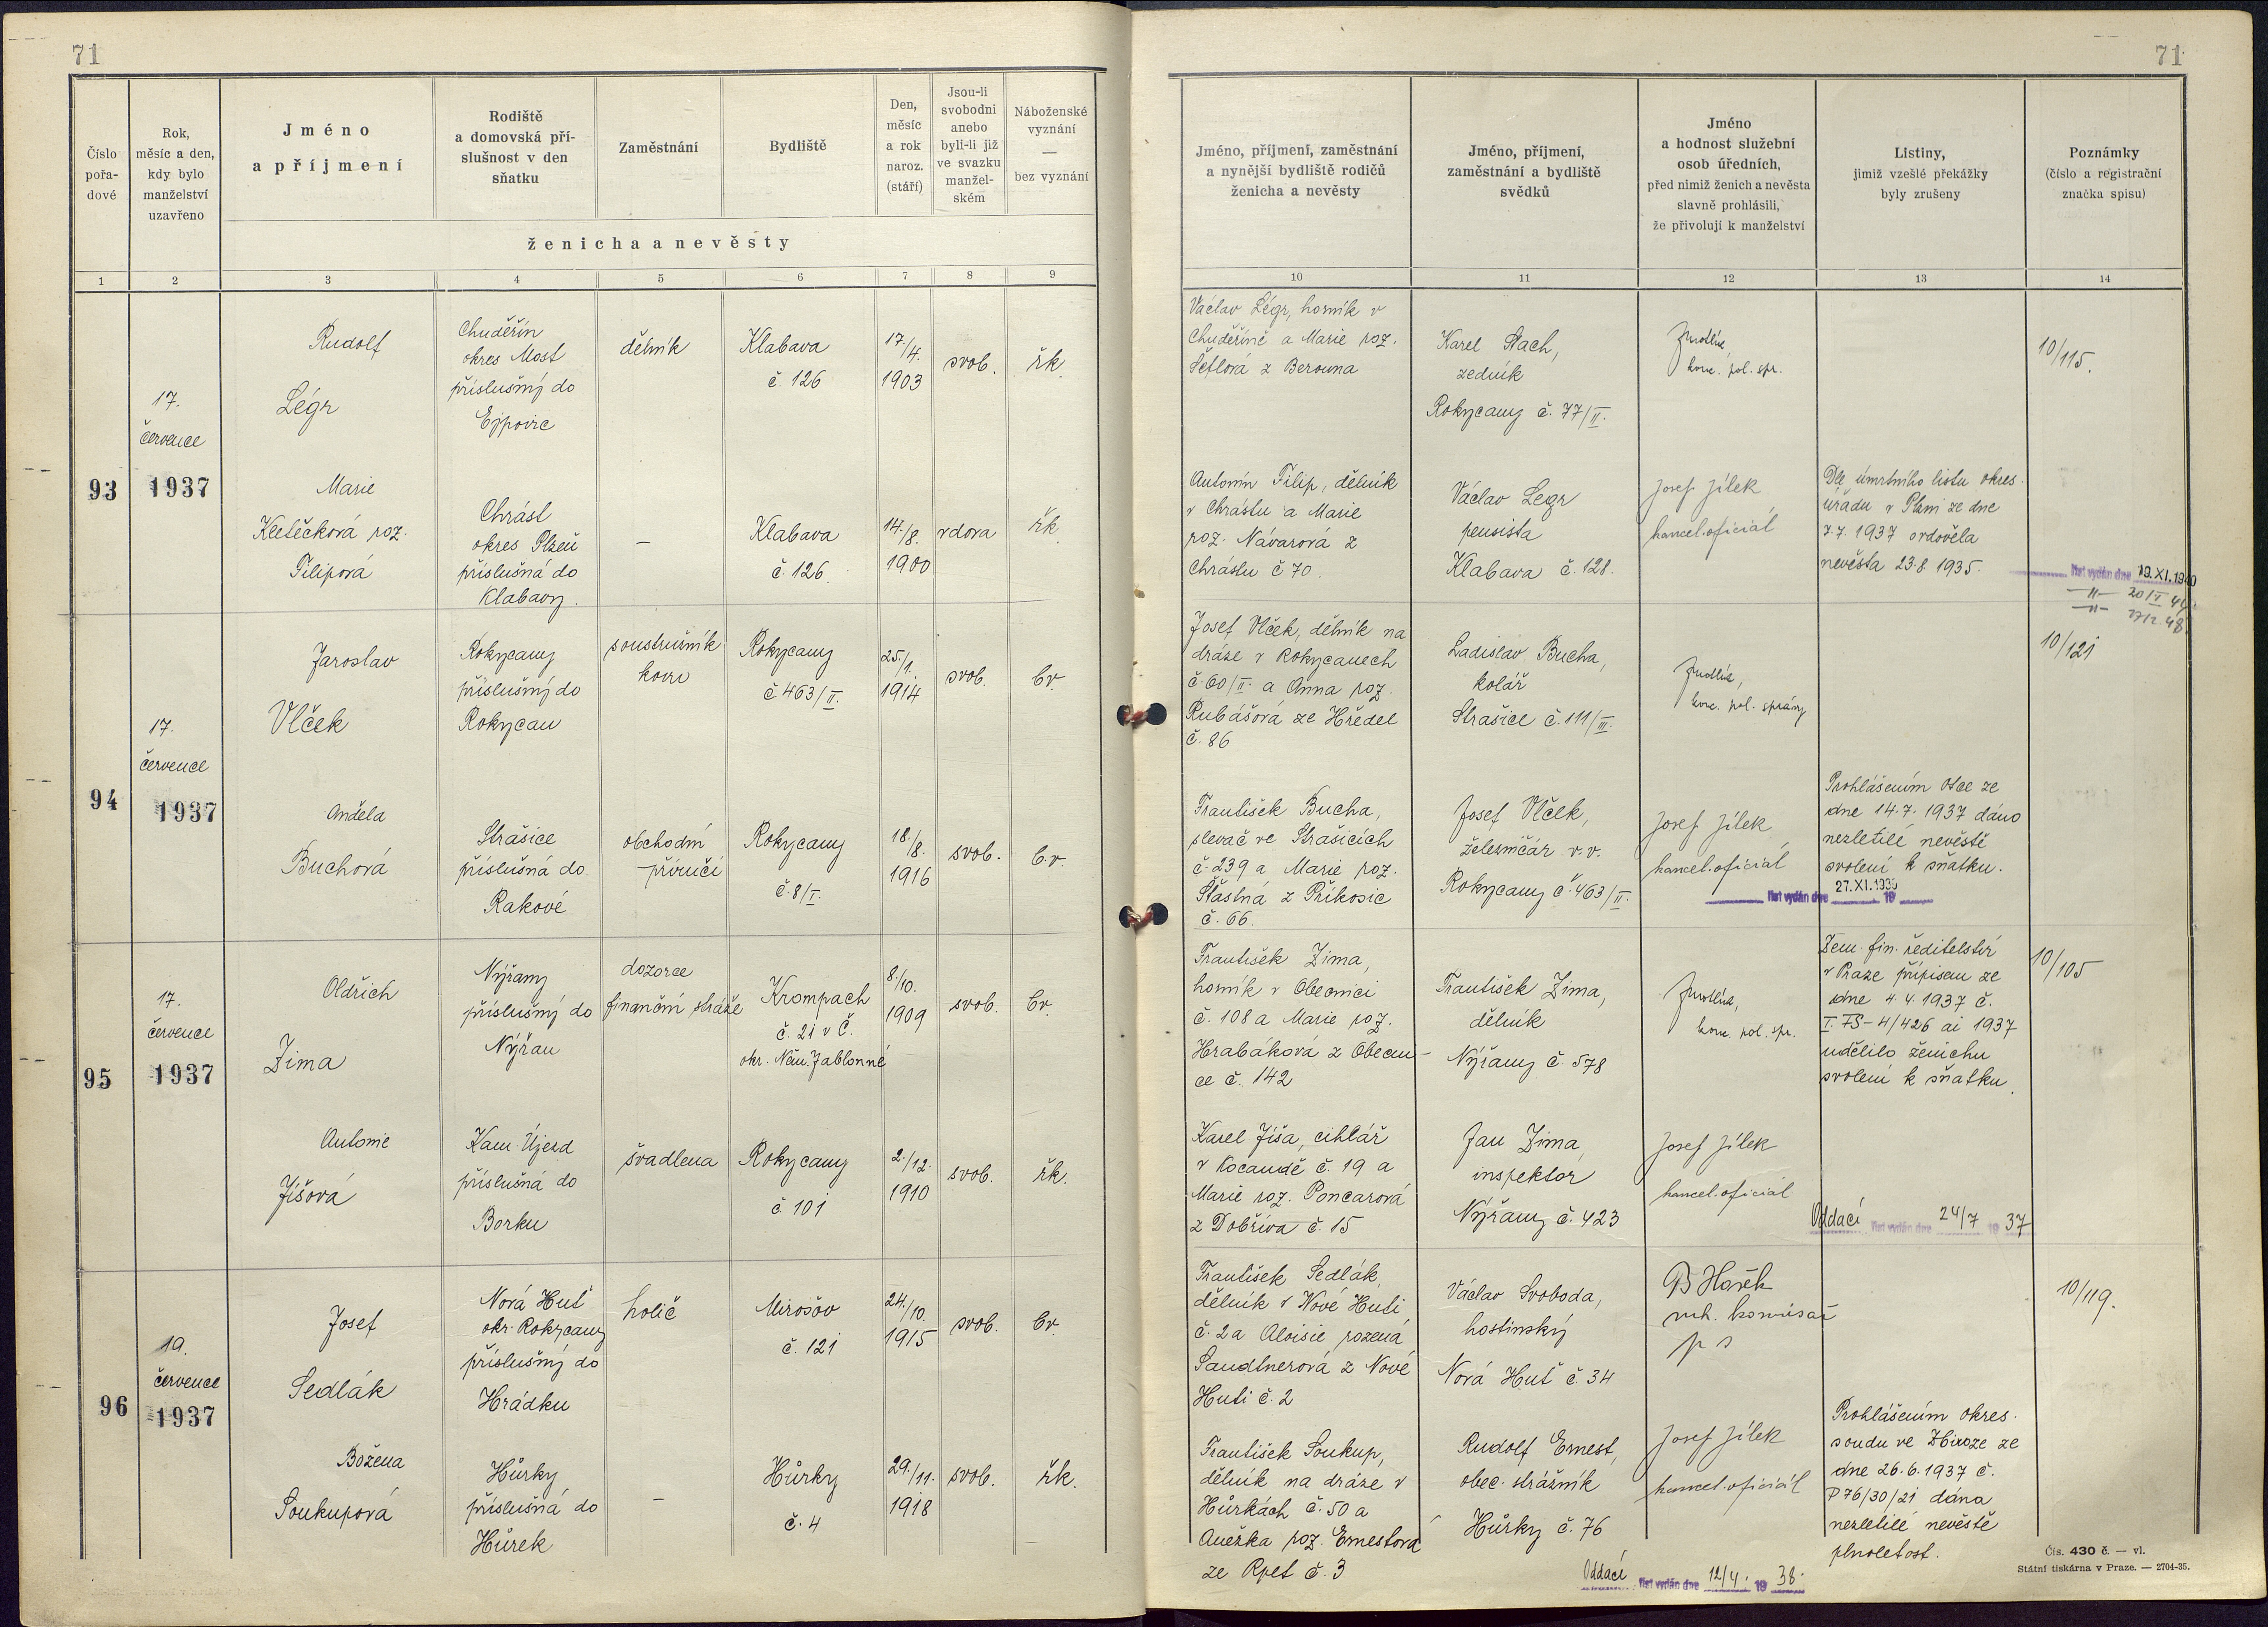 71
71
Číslo pořa- dové
Rok, měsíc a den, kdy bylo manželství uzavřeno
Jméno a příjmení
Rodiště a domovská pří- slušnost v den sňatku
Zaměstnání
Bydliště
Den, měsíc a rok naroz. (stáří)
Jsou-li svobodni anebo byli-li již ve svazku manžel- ském
Náboženské vyznání — bez vyznání
ženicha a nevěsty
Jméno, příjmení, zaměstnání a nynější bydliště rodičů ženicha a nevěsty
Jméno, příjmení, zaměstnání a bydliště svědků
Jméno a hodnost služební osob úředních, před nimiž ženich a nevěsta slavně prohlásili, že přivolují k manželství
Listiny, jimiž vzešlé překážky byly zrušeny
Poznámky (číslo a registrační značka spisu)
1 2 3 4 5 6 7 8 9 10 11 12 13 14
93
17.
července
1937
Rudolf
Légr
Chuděřín
okres Most
příslušný do
Ejpovic
dělník
Klabava
č. 126
17./4.
1903
svob.
řk.
Václav Légr, horník v
Chuděříně a Marie roz.
Šeflová z Berouna
Karel Stach,
zedník
Rokycany č. 77/II.
konc. pol. spr.
10/115.
Marie
Kletečková roz.
Filipová
Chrást
okres Plzeň
příslušná do
Klabavy.
—
Klabava
č. 126.
14./8.
1900
vdova
řk.
Antonín Filip, dělník
v Chrástu a Marie
roz. Návarová z
Chrástu č 70.
Václav Legr
pensista
Klabava č. 128.
Josef Jílek
kancel. oficiál
Dle úmrtního listu okres.
úřadu v Plzni ze dne
7.7. 1937 ovdověla
nevěsta 23.8 1935.
list vydán dne 19. XI. 1940
94
17.
července
1937
Jaroslav
Vlček
Rokycany
příslušný do
Rokycan
soustružník
kovu
Rokycany
č. 463/II.
25./1.
1914
svob.
bv.
Josef Vlček, dělník na
dráze v Rokycanech
č. 60/II. a Anna roz.
Rubášová ze Hředel
č. 86
Ladislav Bucha,
kolář
Strašice č. 111/III.
konc. pol. správy
10/121
Anděla
Buchová
Strašice
příslušná do
Rakové
obchodní
příručí
Rokycany
č. 8/I.
18./8.
1916
svob.
b.v.
František Bucha,
slevač ve Strašicích
č. 239 a Marie roz.
Šťastná z Příkosic
č. 66.
Josef Vlček,
železničář v.v.
Rokycany č. 463/II.
Josef Jílek,
kancel. oficiál
Prohlášením otce ze
dne 14.7. 1937 dáno
nezletilé nevěstě
svolení k sňatku.
list vydán dne 27. XI. 1939 19
95
17.
července
1937
Oldřich
Zima
Nýřany
příslušný do
Nýřan
dozorce
finanční stráže
Krompach
č. 21 v Č.
okr. Něm. Jablonné
8./10.
1909
svob.
bv.
František Zima,
horník v Obecnici
č. 108 a Marie roz.
Hrabáková z Obecni-
ce č. 142
František Zima,
dělník
Nýřany č. 578
konc. pol. spr.
Zem. fin. ředitelství
v Praze přípisem ze
dne 4.4. 1937 č.
I. FS-4/426 ai 1937
udělilo ženichu
svolení k sňatku.
10/105
Antonie
Jíšová
Kam. Újezd
příslušná do
Borku
švadlena
Rokycany
č 101
2./12.
1910
svob.
řk.
Karel Jíša, cihlář
v Kocandě č. 19 a
Marie roz. Poncarová
z Dobříva č. 15
Jan Zima,
inspektor
Nýřany č. 423
Josef Jílek
kancel. oficiál
Oddací list vydán dne 24/7 19 37
96
19.
července
1937
Josef
Sedlák
Nová Huť
okr. Rokycany
příslušný do
Hrádku
holič
Mirošov
č. 121
24./10.
1915
svob.
bv.
František Sedlák,
dělník v Nové Huti
č. 2 a Aloisie rozená
Sandtnerová z Nové
Huti č. 2
Václav Svoboda,
hostinský
Nová Huť č. 34
vrch. komisař
p s
10/119.
Božena
Soukupová
Hůrky
příslušná do
Hůrek
—
Hůrky
č. 4
29./11.
1918
svob.
řk.
František Soukup,
dělník na dráze v
Hůrkách č. 50 a
Anežka roz. Ernestová
ze Rpet č. 3
Rudolf Ernest,
obec. strážník
Hůrky č. 76
Josef Jílek
kancel. oficiál
Prohlášením okres.
soudu ve Zbiroze ze
dne 26.6.1937 č.
P 76/30/21 dána
nezletilé nevěstě
plnoletost.
Oddací list vydán dne 12/4. 19 38.
Čís. 430 č. — vl.
Státní tiskárna v Praze. — 2704-35.